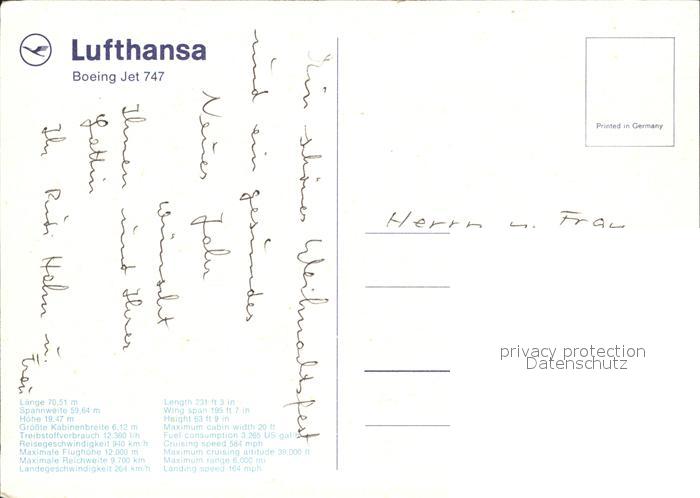 Lufthansa
Boeing Jet 747
Printed in Germany
Ein schönes Weihnachtsfest
und ein gesundes
Neues Jahr
wünscht
Ihnen und Ihrer
Gattin
Ihr Rudi Hahn u.
Frau
Herrn u. Frau
privacy protection
Datenschutz
Länge 70,51 m
Spannweite 59,64 m
Höhe 19,47 m
Größte Kabinenbreite 6,12 m
Treibstoffverbrauch 12.360 l/h
Reisegeschwindigkeit 940 km/h
Maximale Flughöhe 12.000 m
Maximale Reichweite 9.700 km
Landegeschwindigkeit 264 km/h
Length 231 ft 3 in
Wing span 195 ft 7 in
Height 63 ft 9 in
Maximum cabin width 20 ft
Fuel consumption 3,265 US gal/h
Cruising speed 584 mph
Maximum cruising altitude 39,000 ft
Maximum range 6,000 mi
Landing speed 164 mph